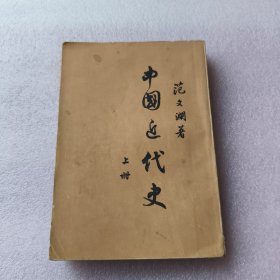 范文瀾著
中國近代史
上册